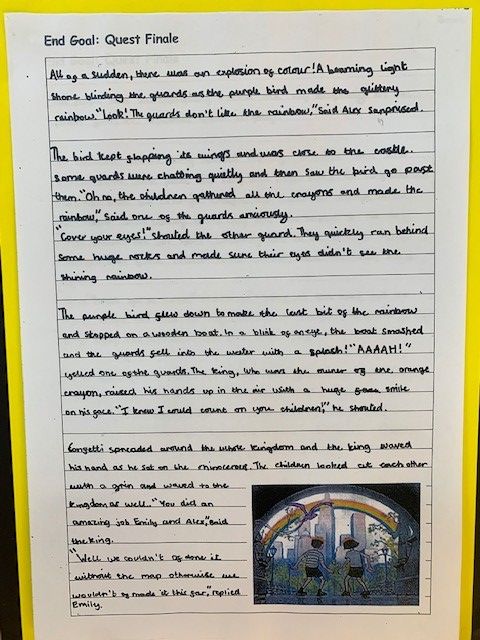 End Goal: Quest Finale
All of a sudden, there was an explosion of colour! A beaming light
shone blinding the guards as the purple bird made the glittery
rainbow. "Look! The guards don't like the rainbow," Said Alex
The bird kept flapping its wings and was close to the castle.
Some guards were chatting quietly and then saw the bird go past
them. "Oh no, the children gathered all the crayons and made the
rainbow," Said one of the guards anxiously.
"Cover your eyes!" Shouted the other guard. They quickly ran behind
some huge rocks and made sure their eyes didn't see the
shining rainbow.
The purple bird flew down to make the last bit of the rainbow
and stopped on a wooden boat. In a blink of an eye, the boat smashed
and the guards fell into the water with a splash! "AAAAH!"
yelled one of the guards. The king, who was the owner of the orange
crayon, raised his hands up in the air with a huge smile
on his face. "I knew I could count on you children!," he shouted.
Confetti spreaded around the whole kingdom and the king waved
his hand as he sat on the rhinoceros. The children looked at each other
with a grin and waved to the
kingdom as well. "You did an
amazing job Emily and Alex," Said
the king.
"Well we couldn't of done it
without the map otherwise we
wouldn't of made it this far," replied
Emily.